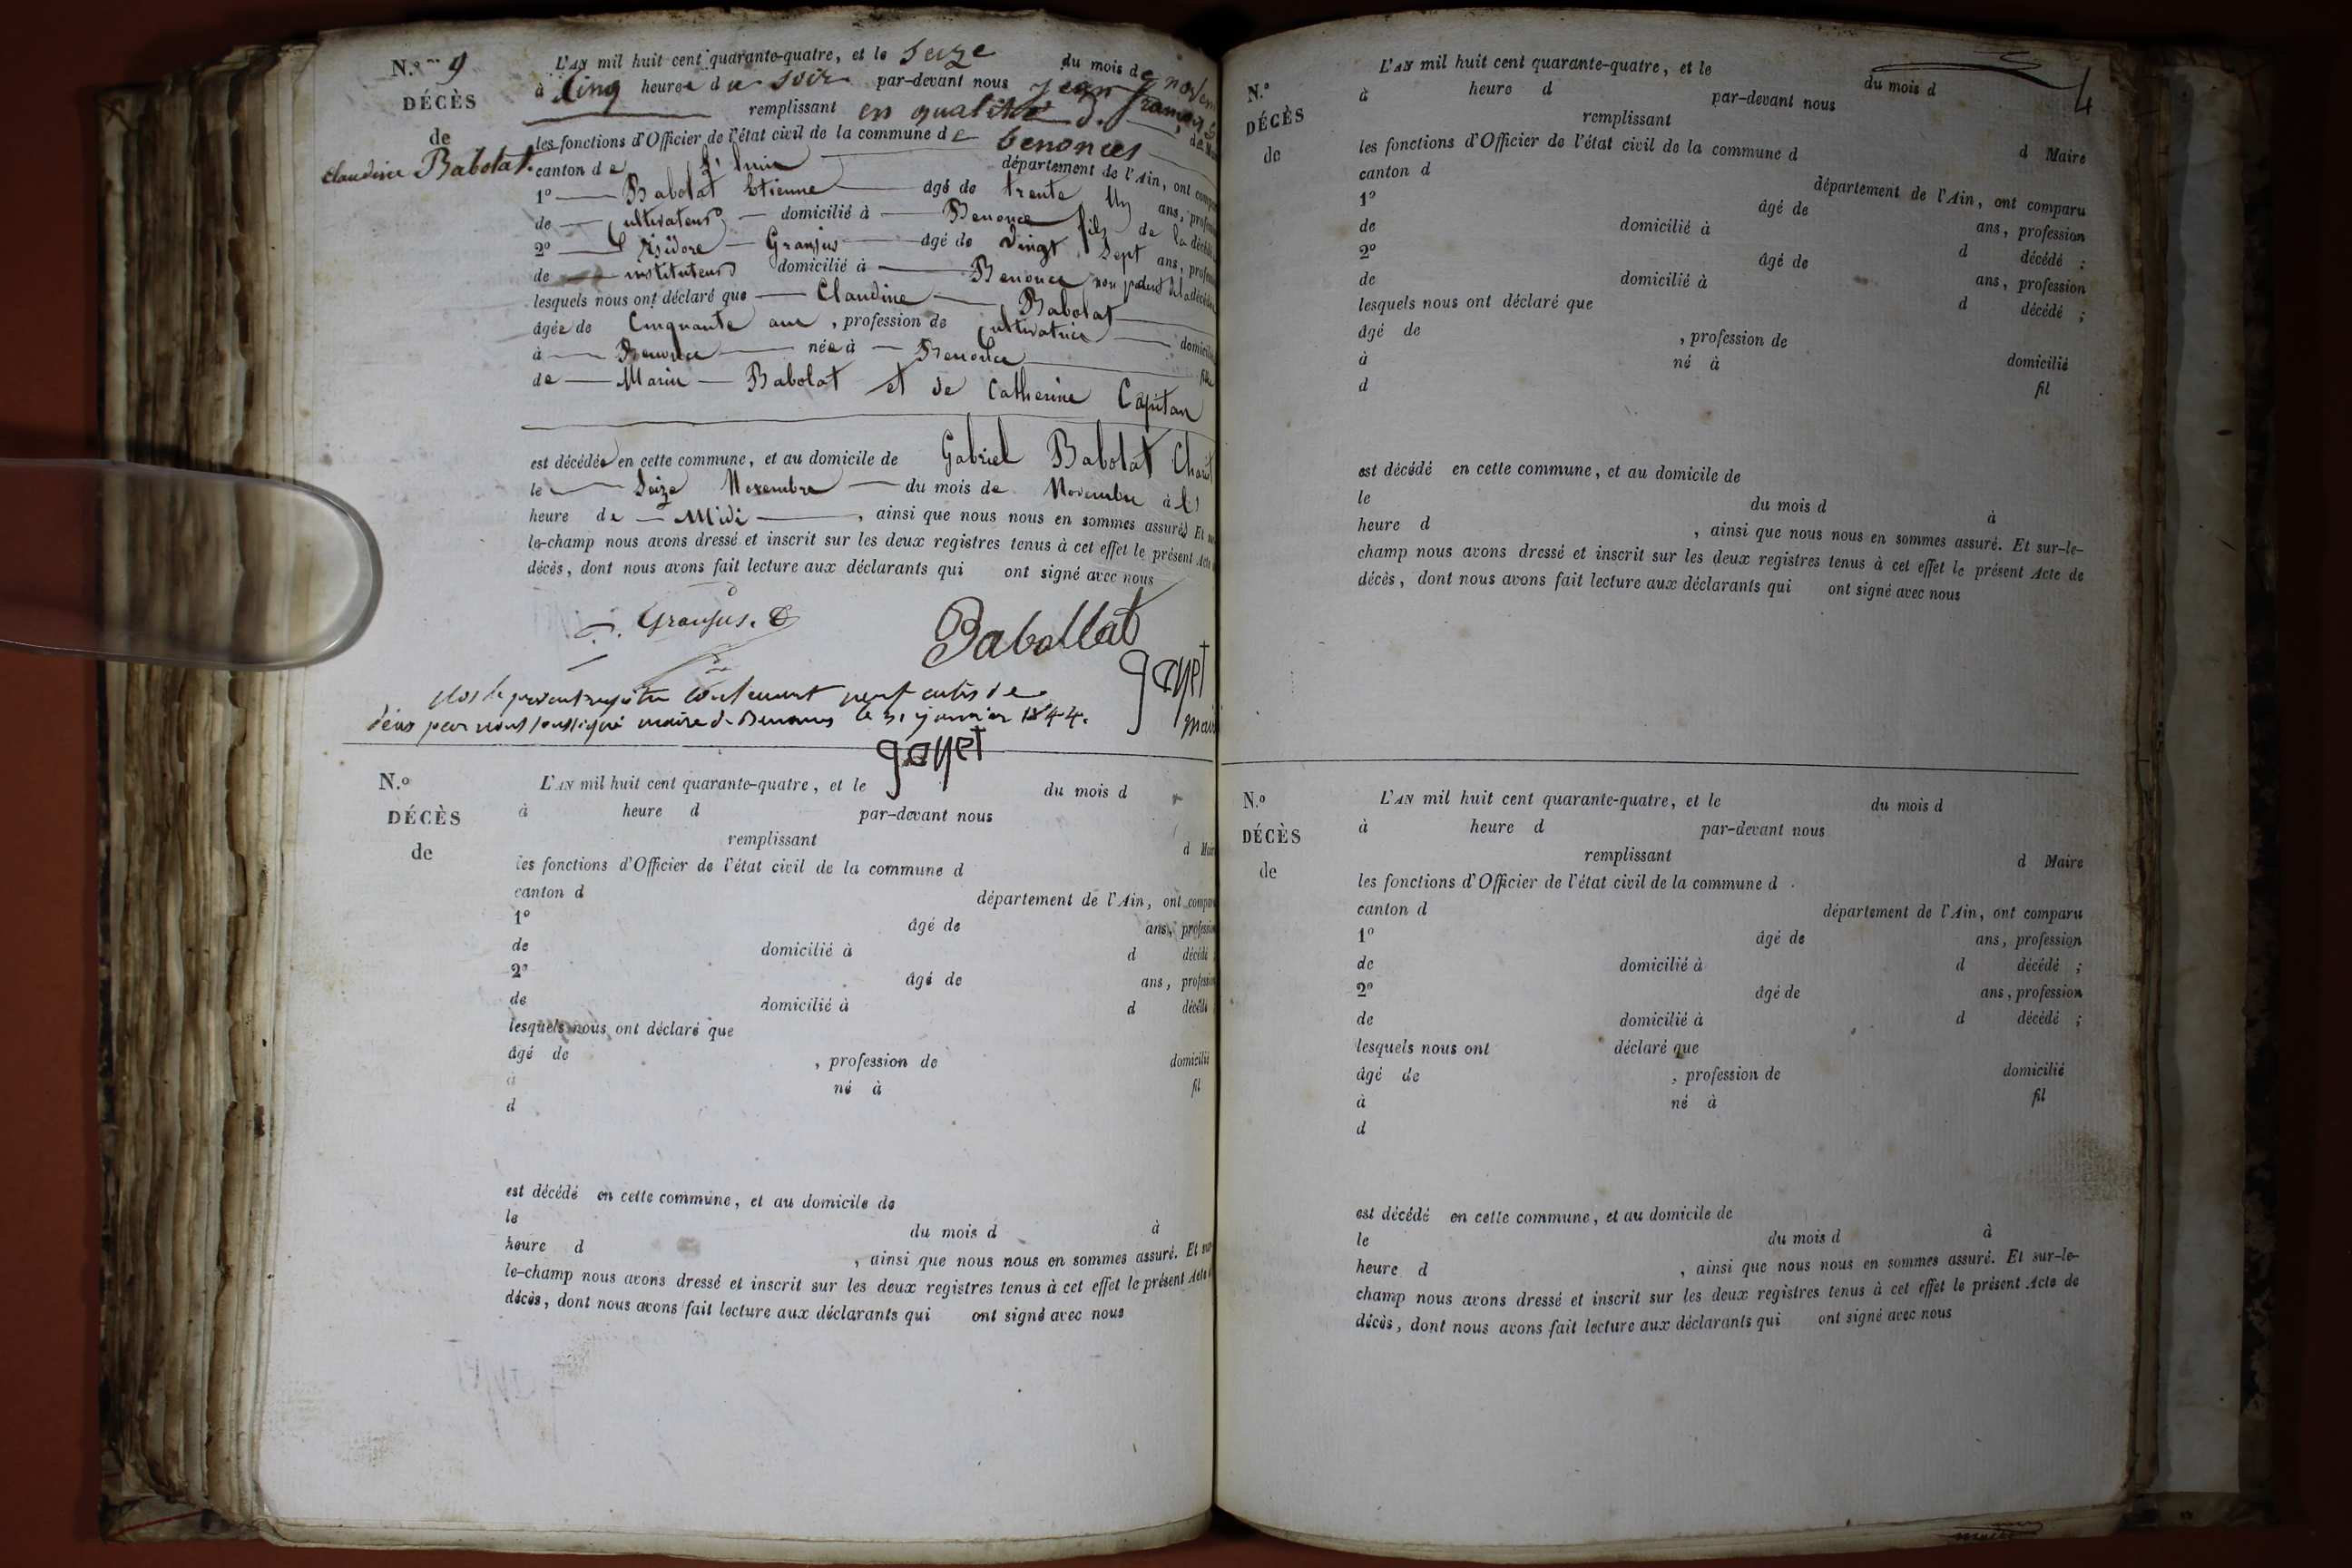 N.º 9
DÉCÈS
de
Claudine Babolat.
L'AN mil huit cent quarante-quatre, et le Seize du mois de novem
à Cinq heures du soir par-devant nous jean françois
remplissant en qualité de
les fonctions d'Officier de l'état civil de la commune de benonces
canton de département de l'Ain, ont compa
1º Babolat Etienne âgé de trente un ans, profess
de cultivateur domicilié à Benonce fils de la décédé
2º Isidore Granjus âgé de vingt sept ans, profess
de instituteur domicilié à Benonce non parent de la décédée
lesquels nous ont déclaré que Claudine Babolat
âgée de Cinquante ans, profession de cultivatrice domicilié
à Benonce née à Benonce fille
de Marin Babolat et de Catherine Capitan
est décédée en cette commune, et au domicile de Gabriel Babolat
le Seize Novembre du mois de Novembre à
heure de Midi, ainsi que nous nous en sommes assuré. Et su
le-champ nous avons dressé et inscrit sur les deux registres tenus à cet effet le présent Acte
décès, dont nous avons fait lecture aux déclarants qui ont signé avec nous
Granjus.
Babollat
gayet
mair
clos le présent registre contenant neuf actes de
décès par nous soussigné maire de Benonces le 31 janvier 1844.
gayet
N.º
DÉCÈS
de
L'AN mil huit cent quarante-quatre, et le du mois d
à heure d par-devant nous
remplissant d Mair
les fonctions d'Officier de l'état civil de la commune d
canton d département de l'Ain, ont compa
1º âgé de ans, profession
de domicilié à d décédé
2º âgé de ans, profession
de domicilié à d décédé
lesquels nous ont déclaré que
âgé de , profession de domicilié
à né à fil
d
est décédé en cette commune, et au domicile de
le du mois d à
heure d , ainsi que nous nous en sommes assuré. Et sur
le-champ nous avons dressé et inscrit sur les deux registres tenus à cet effet le présent Acte
décès, dont nous avons fait lecture aux déclarants qui ont signé avec nous
4
N.º
DÉCÈS
de
L'AN mil huit cent quarante-quatre, et le du mois d
à heure d par-devant nous
remplissant d Maire
les fonctions d'Officier de l'état civil de la commune d
canton d département de l'Ain, ont comparu
1º âgé de ans, profession
de domicilié à d décédé ;
2º âgé de ans, profession
de domicilié à d décédé ;
lesquels nous ont déclaré que
âgé de , profession de domicilié
à né à fil
d
est décédé en cette commune, et au domicile de
le du mois d à
heure d , ainsi que nous nous en sommes assuré. Et sur-le-
champ nous avons dressé et inscrit sur les deux registres tenus à cet effet le présent Acte de
décès, dont nous avons fait lecture aux déclarants qui ont signé avec nous
N.º
DÉCÈS
de
L'AN mil huit cent quarante-quatre, et le du mois d
à heure d par-devant nous
remplissant d Maire
les fonctions d'Officier de l'état civil de la commune d
canton d département de l'Ain, ont comparu
1º âgé de ans, profession
de domicilié à d décédé ;
2º âgé de ans, profession
de domicilié à d décédé ;
lesquels nous ont déclaré que
âgé de , profession de domicilié
à né à fil
d
est décédé en cette commune, et au domicile de
le du mois d à
heure d , ainsi que nous nous en sommes assuré. Et sur-le-
champ nous avons dressé et inscrit sur les deux registres tenus à cet effet le présent Acte de
décès, dont nous avons fait lecture aux déclarants qui ont signé avec nous